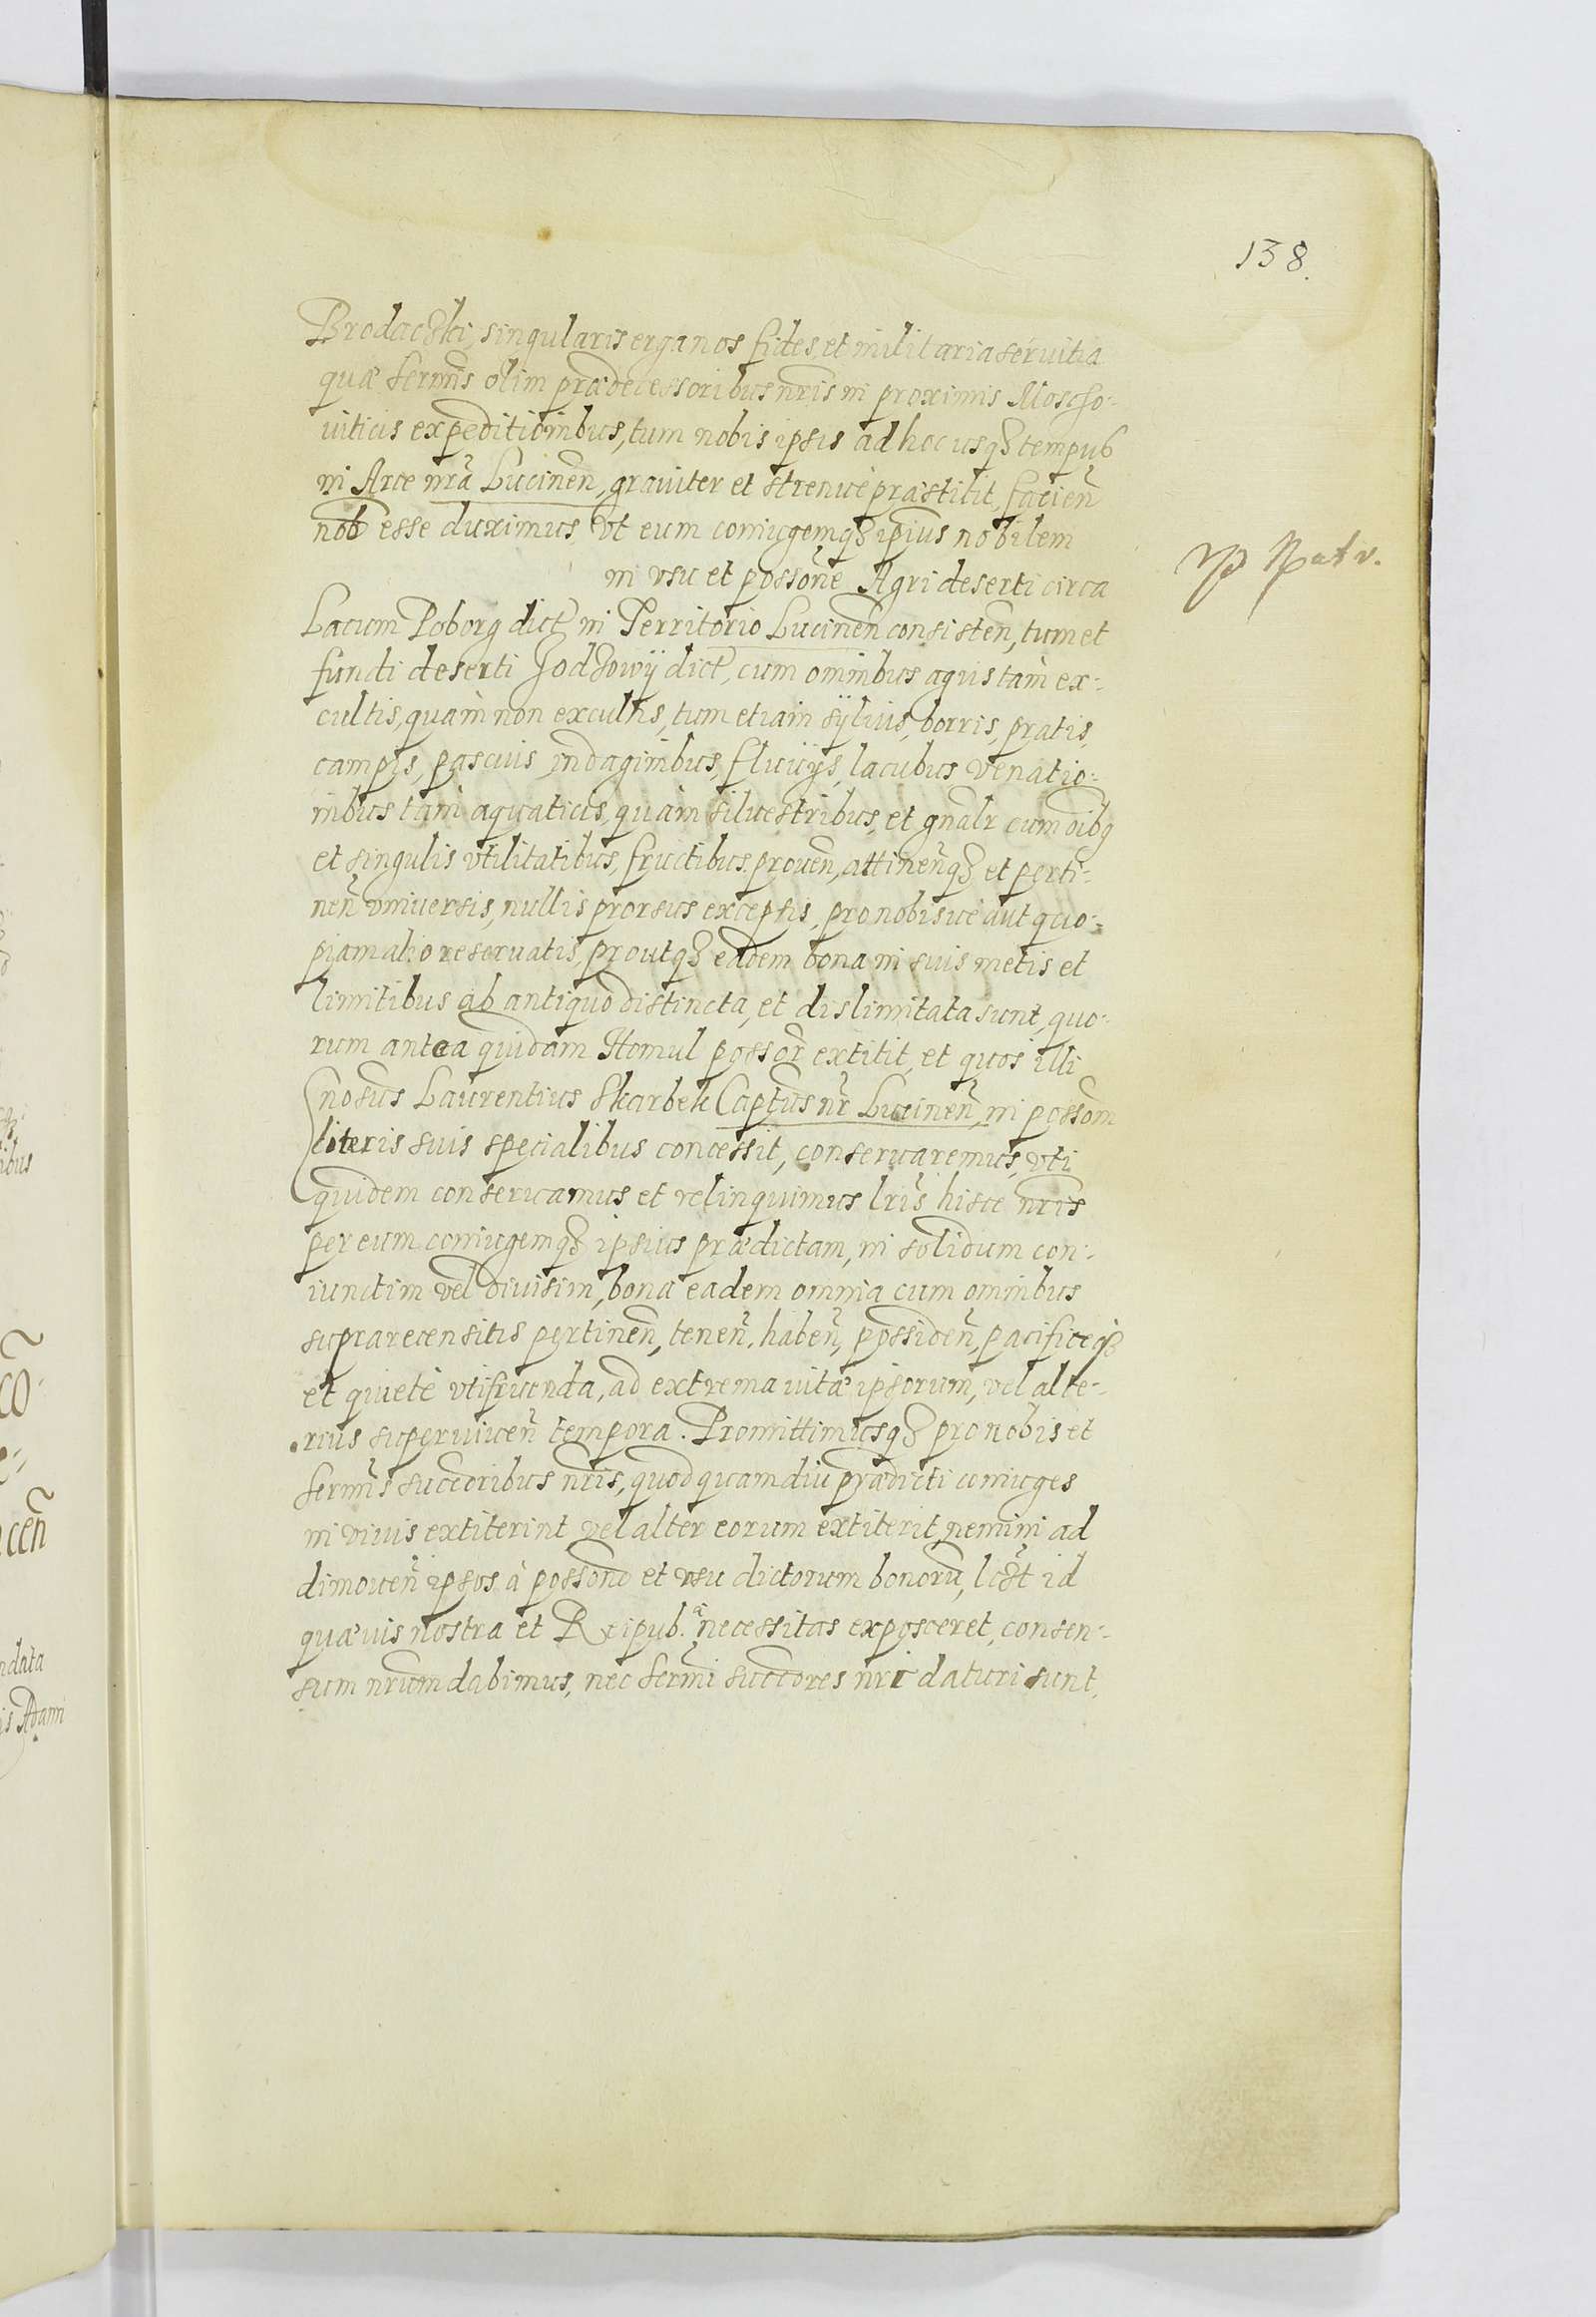 138.
Brodaczki, singularis erga nos fides, et militaria seruitia
quæ Sermis̃ olim prædecessoribus nr̃is in proximis Moscho-
uiticis expeditionibus, tum nobis ipsis ad hoc usq3 tempus
in Arce nr̃a Lucineñ, grauiter et strenue præstitit, facieñ
nob esse duximus, vt eum coniugemq3 ip̃ius nobilem
in vsu et possone Agri deserti circa
Lacum Poborg dict in Territorio Lucineñ consisteñ, tum et
fundi deserti dict, cum omnibus agris tam ex-
cultis, quàm non excultis, tum etiam syluis, borris, pratis,
campis, pascuis indaginibus, fluuijs, lacubus, venatio-
nibus tam aquaticis, quàm siluestribus, et gnalr cum oibq
et singulis vtilitatibus, fructibus, proueñ, attineñq3 et perti-
neñ vniuersis, nullis prorsus exceptis, pro nobisue aut quo-
piam alio reseruatis, proutq3 eadem bona in suis metis et
limitibus ab antiquo distincta, et dislimitata sunt, quo-
rum antea quidam Homul possor extitit, et quos illi
Gnosus Laurentius Skarbek Captus nr̃ Lucineñ, in possom
literis suis specialibus concessit, conseruaremus, vti
quidem conseruamus et relinquimus lris̃ hisce nris̃
per eum coniugemq3 ipsius prædictam, in solidum con-
iunctim vel diuisim, bona eadem omnia cum omnibus
suprarecensitis pertineñ, teneñ, habeñ, possideñ, pacificeq3
et quietè vtifruenda, ad extrema uitæ ipsorum, vel alte-
rius superuiueñ tempora. Promittimusq3 pro nobis et
Sermis̃ succoribus nris̃, quod quamdiu prædicti coniuges
in viuis extiterint vel alter eorum extiterit, nemini ad
dimoueñ ipsos à possone et vsu dictorum bonorũ, licet id
quæuis nostra et Reipub. necessitas exposceret, consen-
sum nrum dabimus, nec Sermi succores nri daturi sunt,